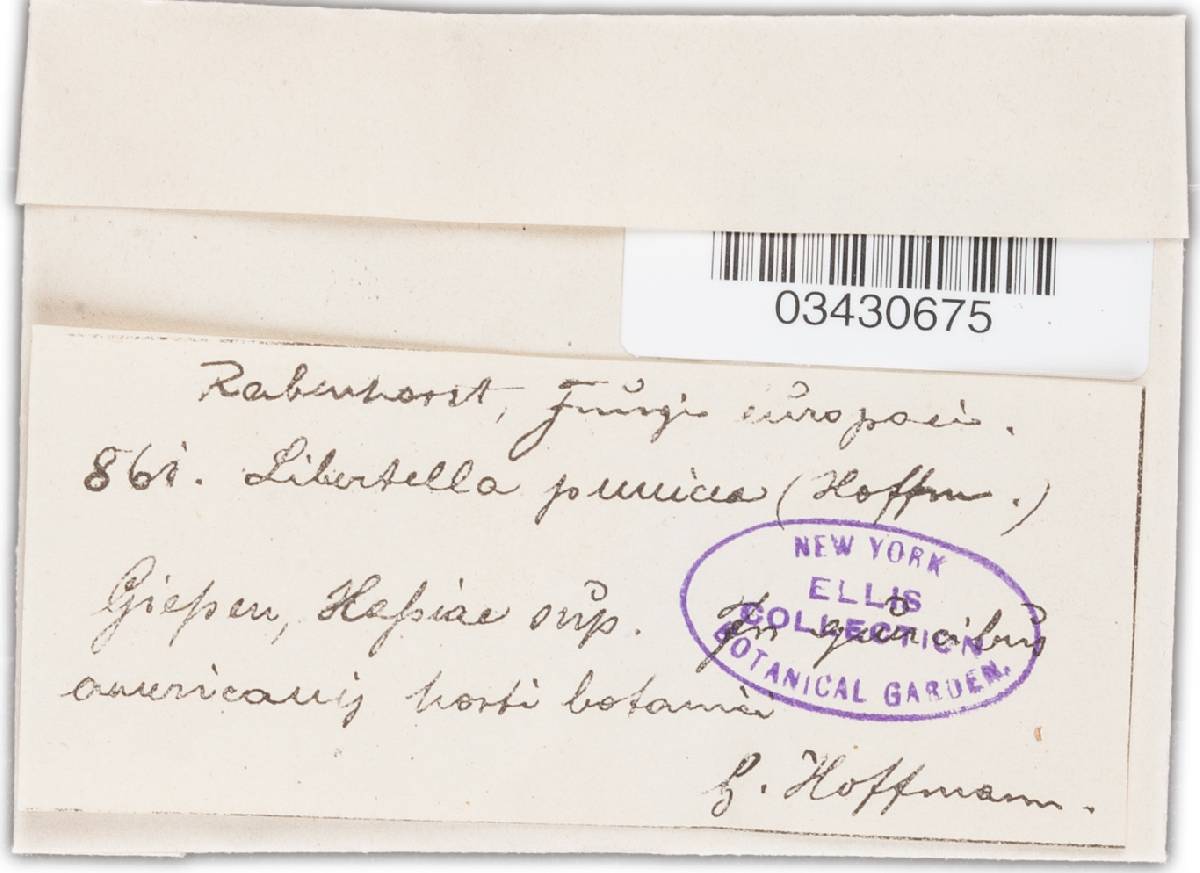 03430675
Rabenhorst, Fungi europaei.
861. Libertella punicea (Hoffm.)
Gießen, Haßiae sup. In quercibus
americanis horti botanici
H. Hoffmann.
NEW YORK
ELLIS
COLLECTION
BOTANICAL GARDEN.